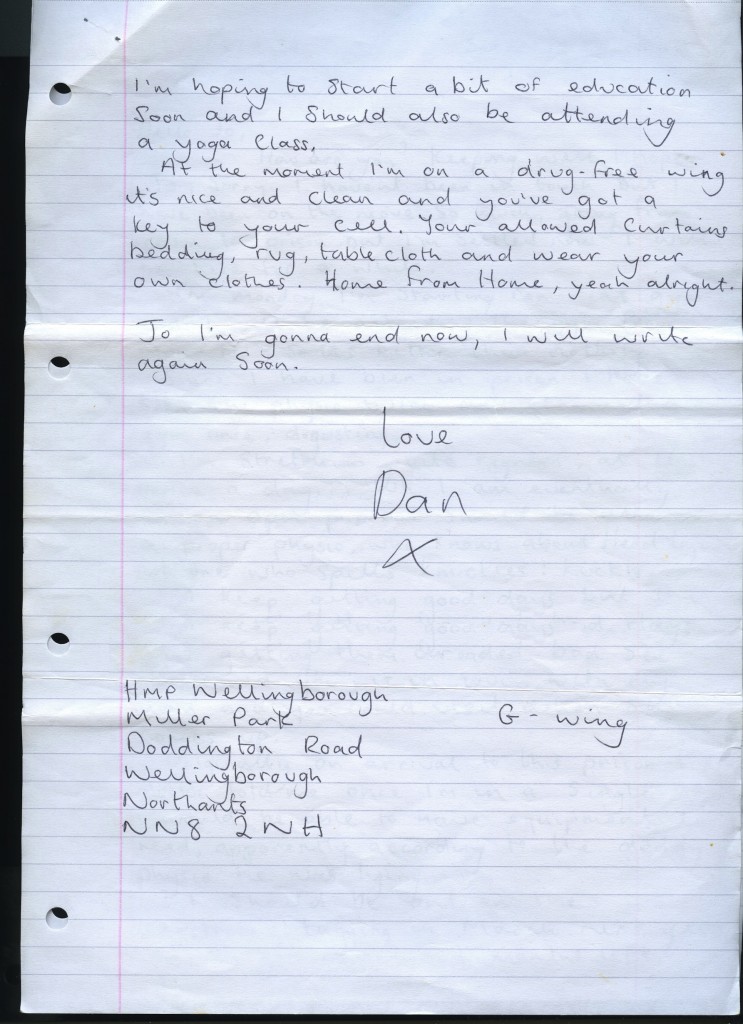 I'm hoping to start a bit of education
soon and I should also be attending
a yoga class.
At the moment I'm on a drug-free wing
it's nice and clean and you've got a
key to your cell. Your allowed curtains
bedding, rug, table cloth and wear your
own clothes. Home from Home, yeah alright.
Jo I'm gonna end now, I will write
again soon.
Love
Dan
X
HMP Wellingborough
Miller Park
G - wing
Doddington Road
Wellingborough
Northants
NN8 2NH